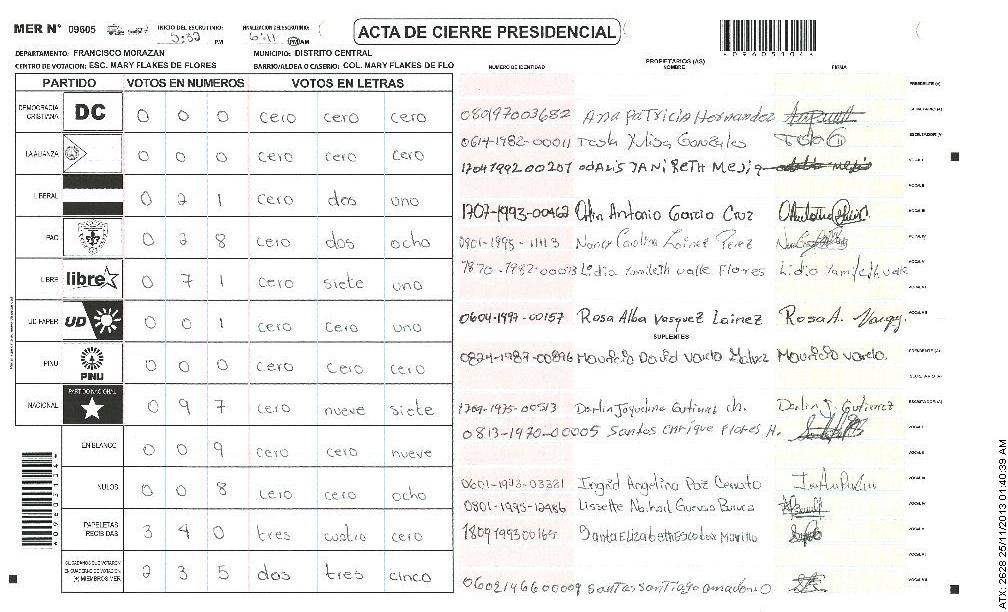 MER N° 09605 INICIO DEL ESCRUTINIO: 5:32 PM FINALIZACIÓN DEL ESCRUTINIO: 6:11 AM PM
ACTA DE CIERRE PRESIDENCIAL
DEPARTAMENTO: FRANCISCO MORAZAN MUNICIPIO: DISTRITO CENTRAL
CENTRO DE VOTACION: ESC. MARY FLAKES DE FLORES BARRIO/ALDEA O CASERIO: COL. MARY FLAKES DE FLO
NUMERO DE IDENTIDAD PROPIETARIOS (AS) NOMBRE FIRMA
PARTIDO VOTOS EN NUMEROS VOTOS EN LETRAS
DEMOCRACIA CRISTIANA DC 0 0 0 cero cero cero
LA ALIANZA 0 0 0 cero cero cero
LIBERAL 0 2 1 cero dos uno
PAC 0 2 8 cero dos ocho
LIBRE libre 0 7 1 cero siete uno
UD FAPER UD 0 0 1 cero cero uno
PINU PINU 0 0 0 cero cero cero
NACIONAL PARTIDO NACIONAL 0 9 7 cero nueve siete
EN BLANCO 0 0 9 cero cero nueve
NULOS 0 0 8 cero cero ocho
PAPELETAS RECIBIDAS 3 4 0 tres cuatro cero
CIUDADANOS QUE VOTARON EN CUADERNO DE VOTACION (+) MIEMBROS MER 2 3 5 dos tres cinco
080197003682 Ana Patricia Hernandez
0614-1982-00011 Tesla Gonzales
1704199200207 Odalis Janireth Mejia
1707-1993-00462 Antonio Garcia Cruz
Nancy Carolina Lainez Perez
Lidia Yamileth valle Flores Lidia Yamileth valle
0604-1997-00157 Rosa Alba Vasquez Lainez Rosa A. Vasquez
SUPLENTES
0824-1987-00896 Mauricio David Mauricio
1709-1975-00513 Darlin Gutierrez Darlin J. Gutierrez
0813-1970-00005 Santos Enrique Flores H.
0601-1993-03381 Ingrid Angelina Paz
0801-1995-12486 Lissette
1809199300165 Santa Elizabeth Escobar Murillo
0602146600009 Santos Santiago
*09605104*
ATX-2628 25/11/2013 01:40:39 AM